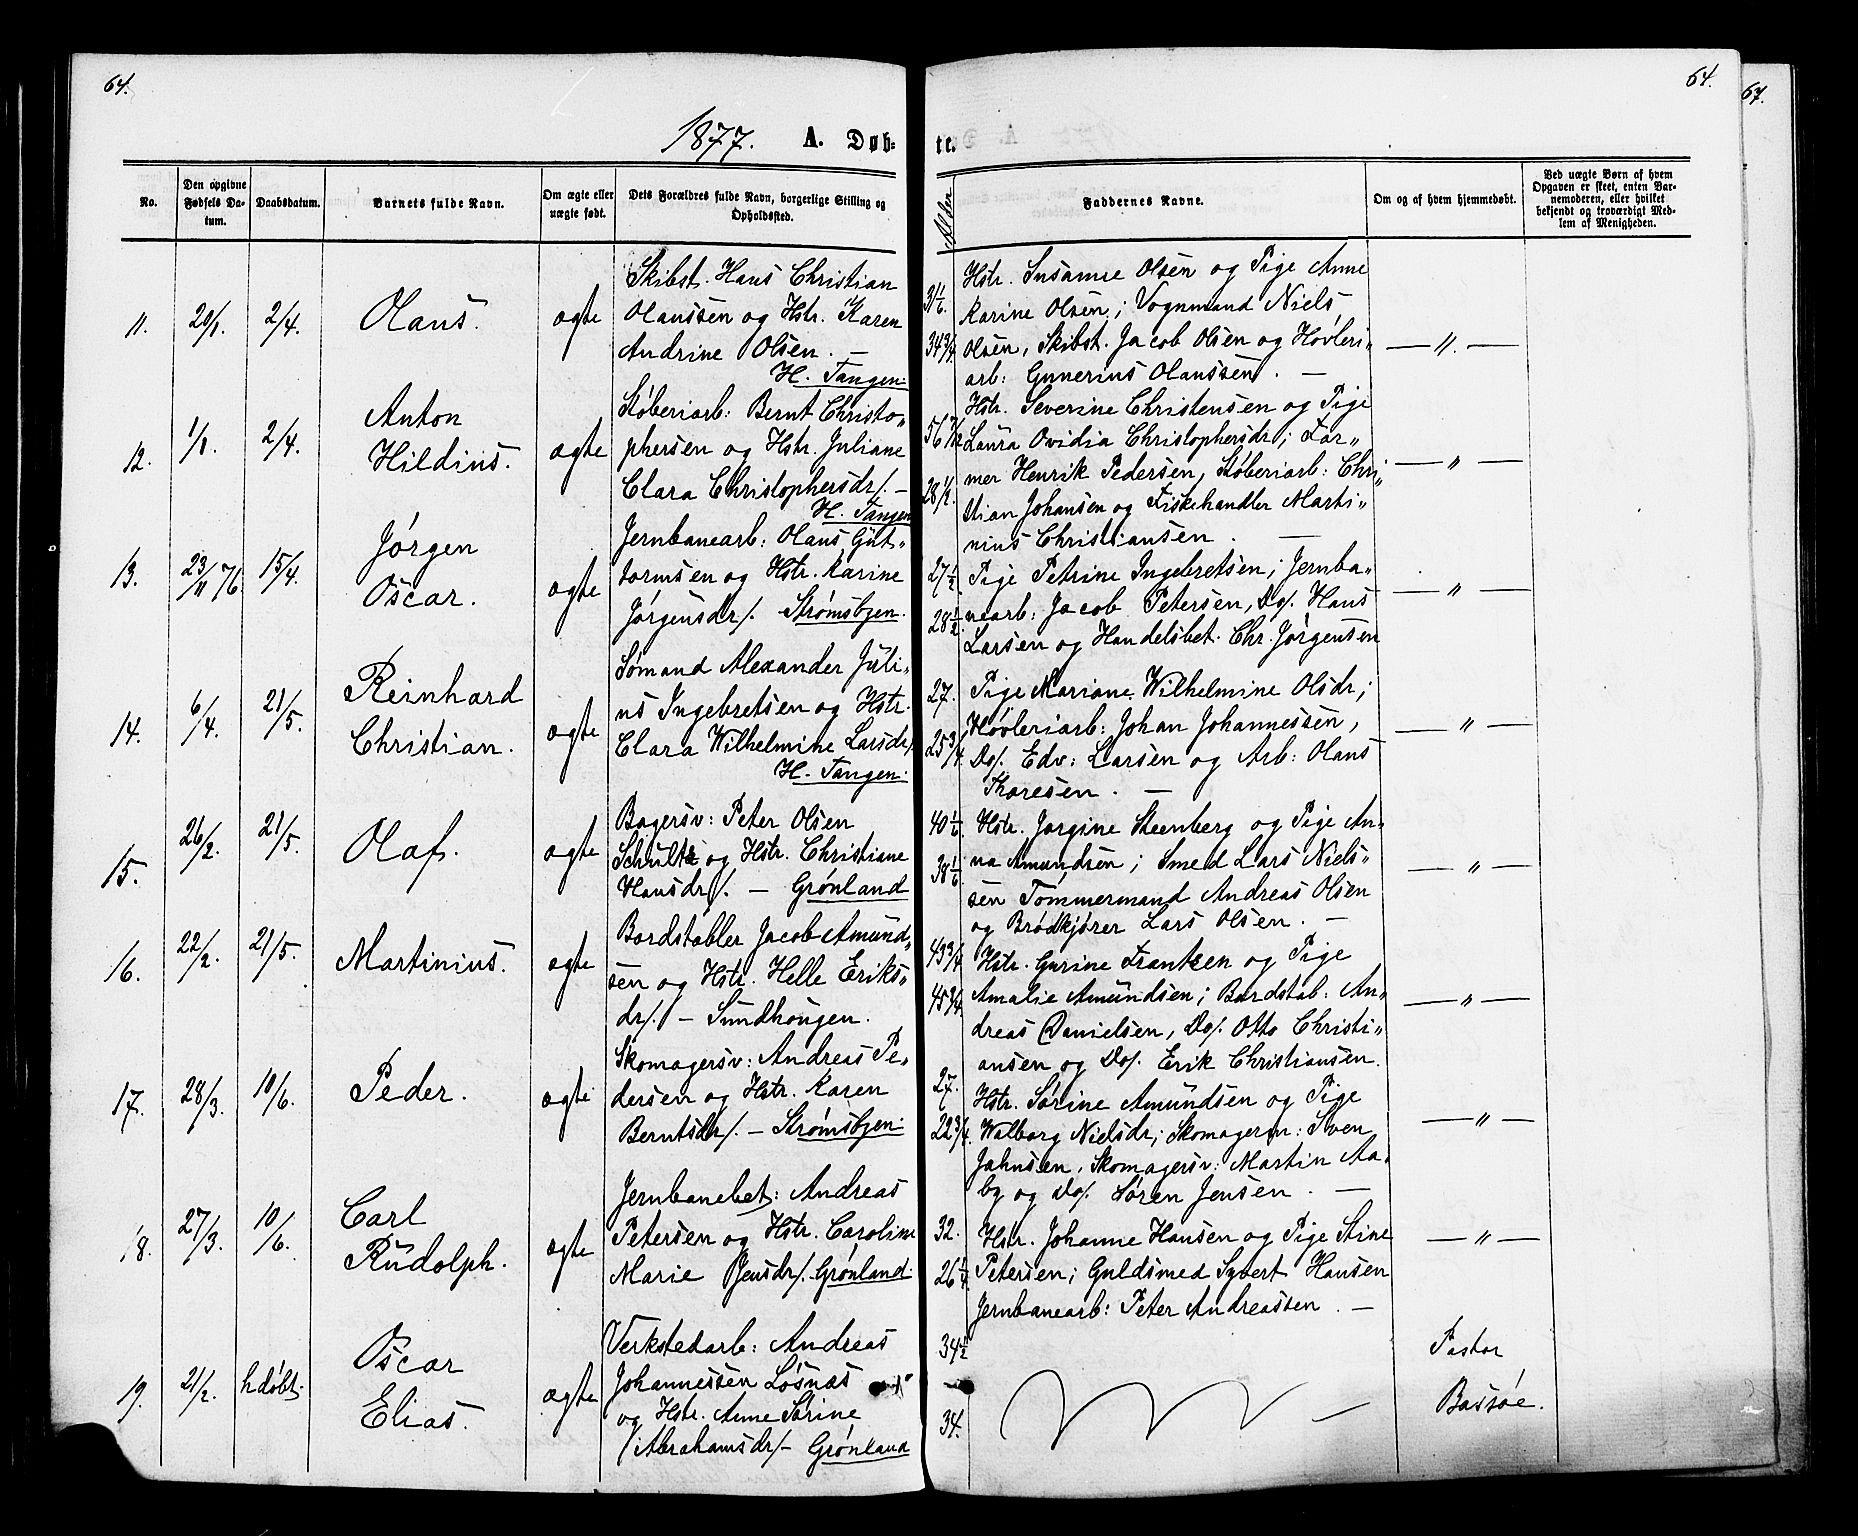 64.
64.
67.
1877. A. Døb-
te.
No.
Den opgivne Fødsels Datum.
Daabsdatum.
Barnets fulde Navn.
Om ægte eller uægte født.
Dets Forældres fulde Navn, borgerlige Stilling og Opholdssted.
Alder
Faddernes Navne.
Om og af hvem hjemmedøbt.
Ved uægte Børn af hvem Opgaven er skeet, enten Barnemoderen, eller hvilket bekjendt og troværdigt Medlem af Menigheden.
11. 20/1. 2/4. Olaus. ægte
Skibst. Hans Christian
Olaussen og Hstr. Karen
Andrine Olsen. —
H. Tangen.
31 1/6.
34 3/4
Hstr. Susanne Olsen og Pige Anne
Karine Olsen; Vognmand Niels
Olsen, Skibst. Jacob Olsen og Høvleri-
arb: Gunerius Olaussen. —
— " —
12. 1/1. 2/4. Anton
Hildius. ægte
Støberiarb: Bernt Christo-
phersen og Hstr. Juliane
Clara Christophersdr/. —
H. Tangen
56 7/12
28 1/2.
Hstr. Severine Christensen og Pige
Laura Ovidia Christophersdr; Far-
mer Henrik Pedersen, Støberiarb: Chri-
stian Johansen og Fiskehandler Marti-
nius Christiansen. —
— " —
13. 23/11 76. 15/4. Jørgen
Oscar. ægte
Jernbanearb: Olaus Gut-
tormsen og Hstr. Karine
Jørgensdr/. Strømsbyen.
27 1/2
28 1/2
Pige Petrine Ingebretsen; Jernba-
nearb: Jacob Petersen, Do/. Hans
Larsen og Handelsbet. Chr. Jørgensen
— " —
14. 6/4. 21/5. Reinhard
Christian. ægte
Sømand Alexander Juli-
us Ingebretsen og Hstr.
Clara Wilhelmine Larsdr/.
H. Tangen.
27.
25 3/4
Pige Mariane Wilhelmine Olsdr;
Høvleriarb: Johan Johannessen,
Do/. Edv: Larsen og Arb: Olaus
Thoresen. —
— " —
15. 26/2. 21/5. Olaf. ægte
Bagersv: Peter Olsen
Schultz og Hstr. Christiane
Hansdr/. — Grønland
40 1/6
38 1/6
Hstr. Jørgine Steenberg og Pige An-
na Amundsen; Smed Lars Niels-
sen Tømmermand Andreas Olsen
og Brødkjører Lars Olsen. —
— " —
16. 22/2. 21/5. Martinius. ægte
Bordstabler Jacob Amund-
sen og Hstr. Helle Eriks-
dr/. — Sundhougen.
43 3/4
45 3/4
Hstr. Gurine Frantzen og Pige
Amalie Amundsen; Bordstab: An-
dreas Danielsen, Do/. Otto Christi-
ansen og Do/. Erik Christiansen.
— " —
17. 28/3. 10/6. Peder. ægte
Skomagersv: Andreas Pe-
dersen og Hstr. Karen
Berntsdr/. — Strømsbyen.
27.
22 3/4
Hstr. Sørine Amundsen og Pige
Walborg Nielsdr; Skomagersv: Sven
Jahnsen, Skomagersv: Martin Aa-
by og Do/. Søren Jensen. —
— " —
18. 27/3. 10/6. Carl
Rudolph. ægte
Jernbanebet: Andreas
Petersen og Hstr. Caroline
Marie Jensdr/. Grønland.
32.
26 1/4
Hstr. Johanne Hansen og Pige Stine
Petersen; Guldsmed Syvert Hansen
Jernbanearb: Peter Andreassen. —
— " —
19. 21/2. hdøbt. Oscar
Elias. ægte
Verkstedarb: Andreas
Johannessen Løsnæs
og Hstr. Anne Sørine
Abrahamsdr/— Grønland
34 1/2
34.
Pastor
Bassøe.